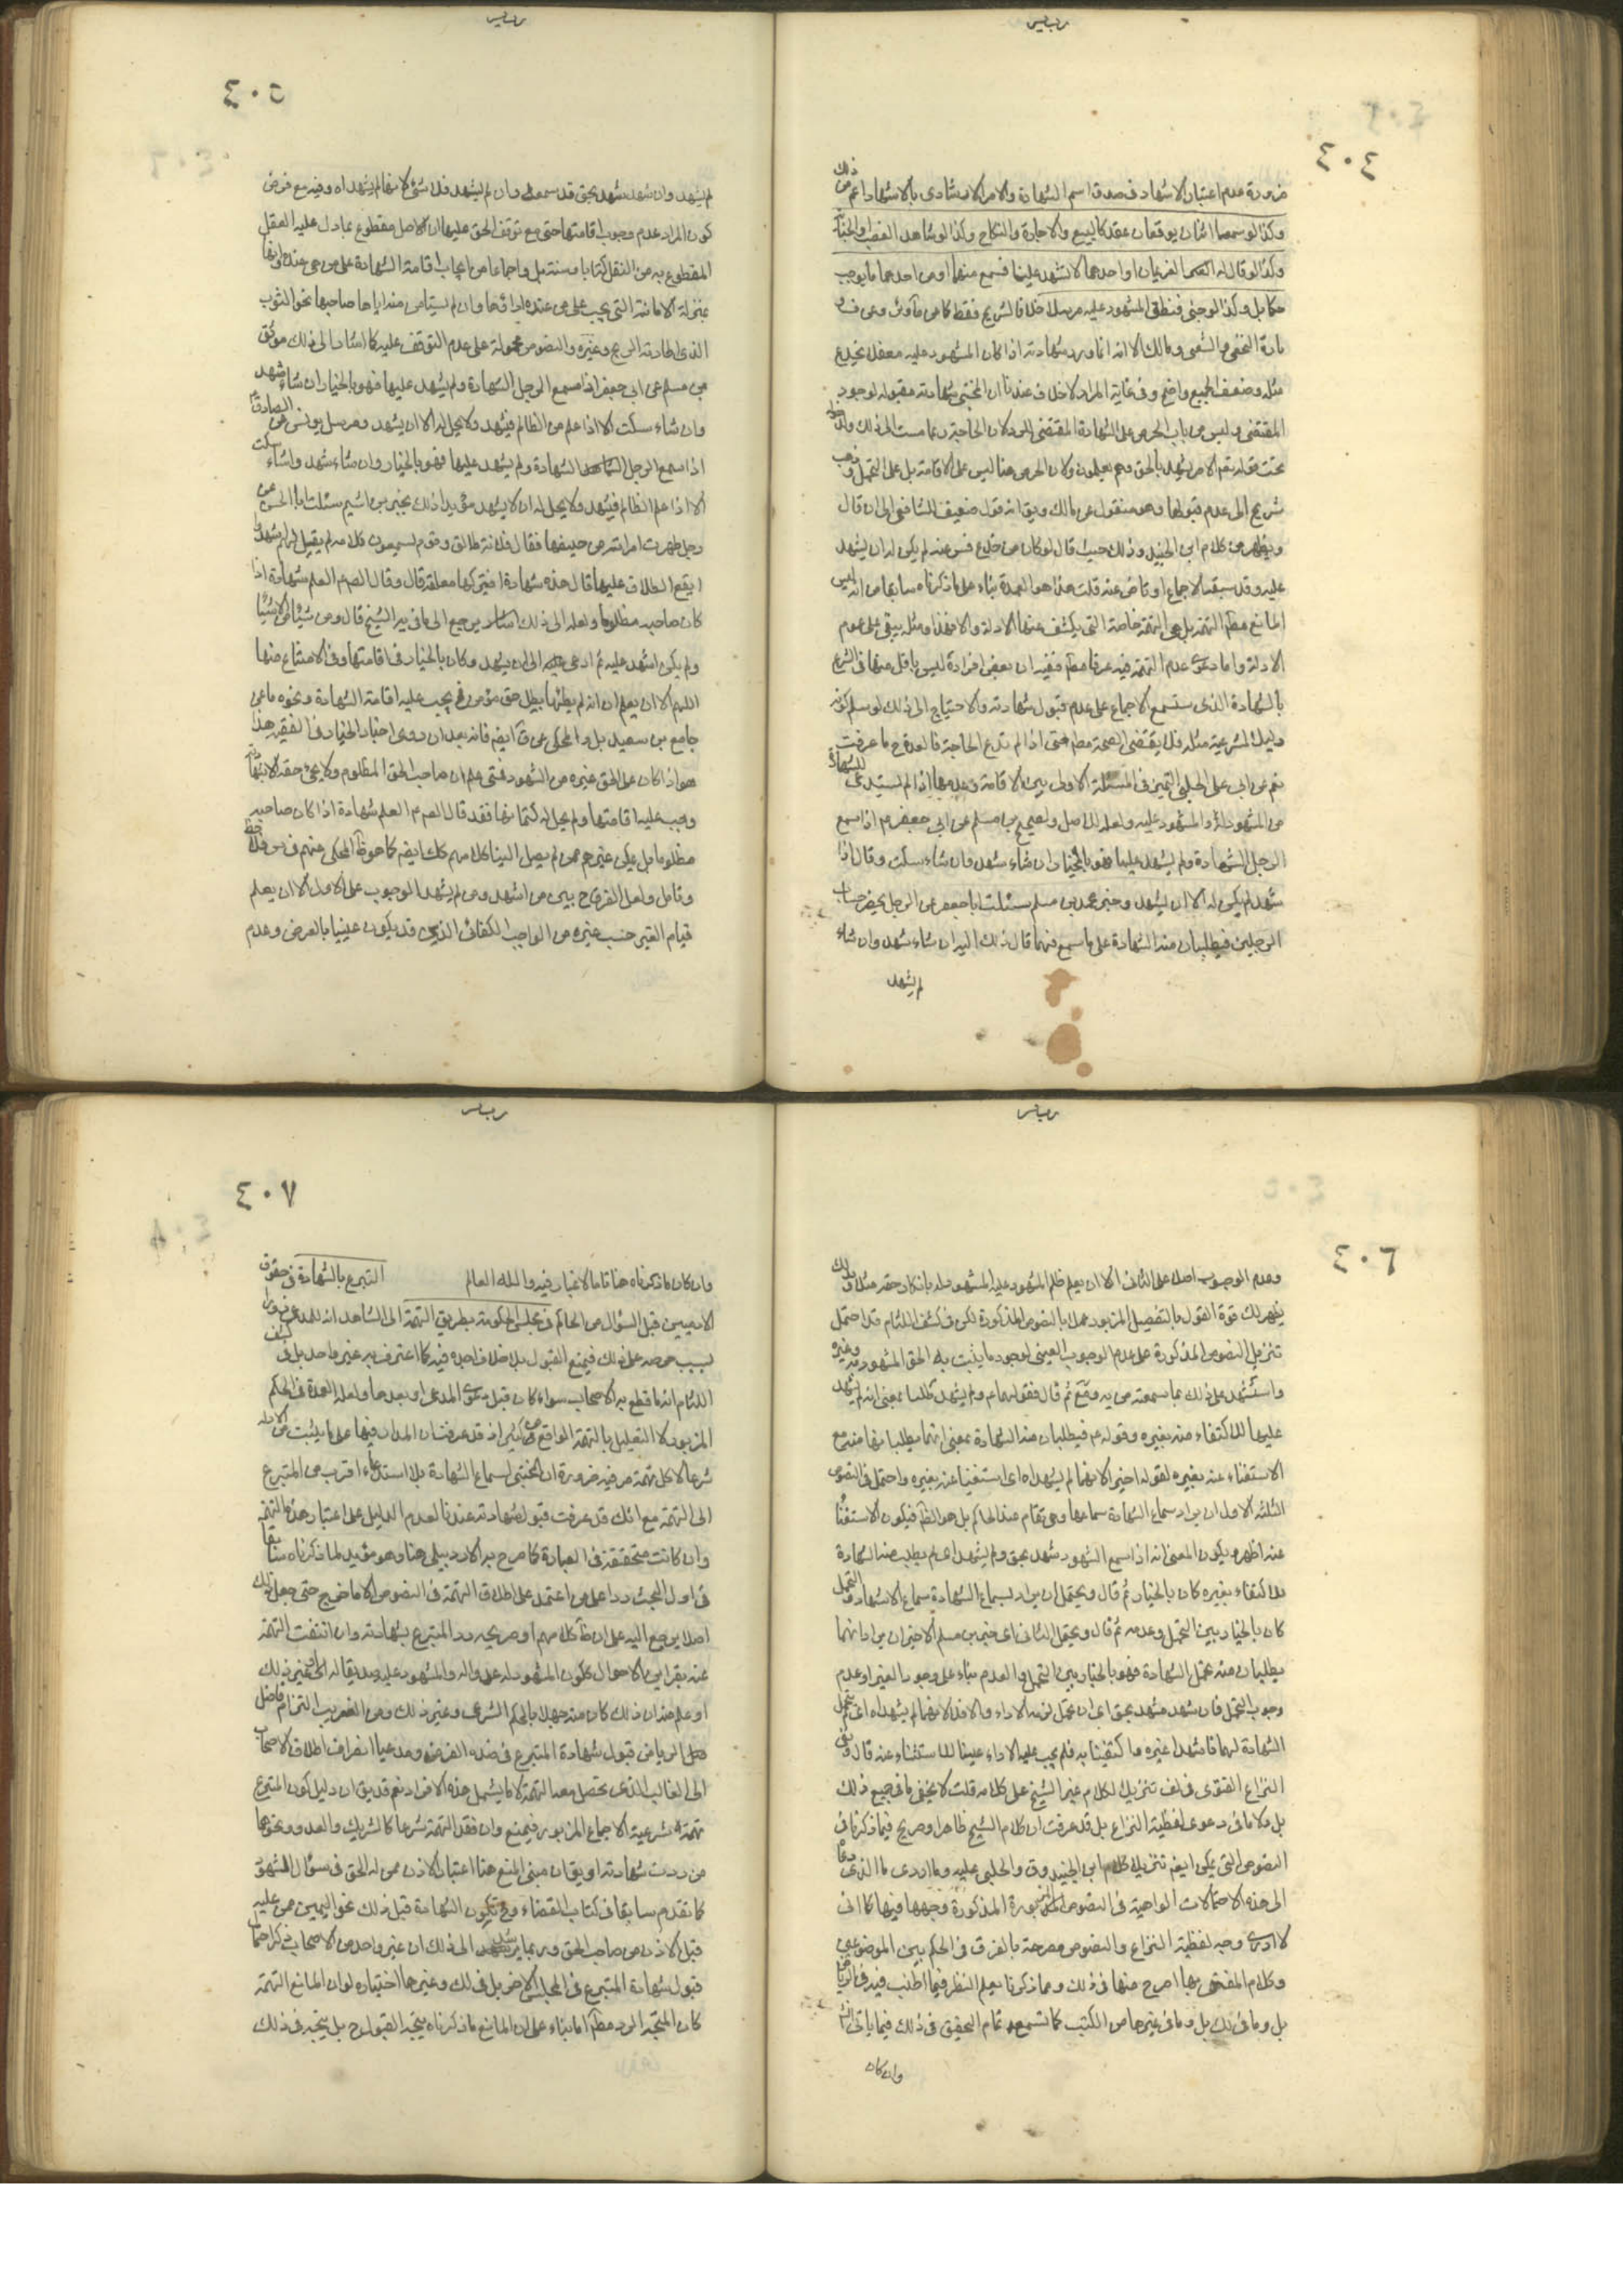 ٤٠٤
ضرورة عدم اعتبار الاشهاد فى صدق اسم الشهادة والامر بالاشهاد اعم من ذلك
وكذا لو سمعا اثنان يوقعان عقدا كالبيع والاجارة والنكاح وكذا لو شاهد الغصب او الجناية
وكذا لو قال له الغريمان او احدهما لا تشهد علينا فسمع منهما او من احدهما ما يوجب
حكما بل وكذا لو خبئ فنطق المشهود عليه مسترسلا خلافا لشريح فقط
النخعى والشعبى ومالك الا انه انما يرد شهادته اذا كان المشهود عليه مغفلا يخدع
مثله وضعف الجميع واضح وفى غاية المراد لا خلاف عندنا ان المختبى شهادته مقبولة لوجود
المقتضى وليس من باب الحرص على الشهادة المقتضى للرد لان الحاجة ربما مست الى ذلك
تحت قوله تعالى الا من شهد بالحق وهم يعلمون ولان الحرص هنا ليس على الاقامة بل على التحمل وذهب
شريح الى عدم قبولها وهو منقول عن مالك ويق انه قول ضعيف للشافعى الى ان قال
ويظهر من كلام ابن الجنيد وذلك حيث قال لو كان من خدع فستر عنه لم يكن له ان يشهد
عليه وقد سبقه الاجماع او تاخر عنه قلت هذا هو العمدة بناء على ما ذكرناه سابقا من انه ليس
المانع مطلق التهمة بل هى التهمة خاصة التى يكشف عنها الادلة والا فهذا ومثله يبقى على عموم
الادلة واما دعوى عدم التهمة فيه عرفا ففيه ان بعض افراده ليس باقل منها فى التبرع
بالشهادة الذى ستسمع الاجماع على عدم قبول شهادته والاحتياج الى ذلك لو سلم كونه
دليل المشروعية مثله فلا يقتضى الصحة مطلقا حتى اذا لم تدع الحاجة فالعمدة ح ما عرفت
نعم عن ابى على الحلبى التخيير فى المسئلة الاولى بين الاقامة وعدمها اذا لم يستدعى للشهادة
من المشهود له والمشهود عليه ولعله للاصل ولصحيح بن مسلم عن ابى جعفر ع اذا سمع
الرجل الشهادة ولم يشهد عليها فهو بالخيار ان شاء شهد وان شاء سكت وقال اذا
شهد لم يكن له الا ان يشهد وخبر محمد بن مسلم سئلت ابا جعفر عن الرجل يحضر حساب
الرجلين فيطلبان منه الشهادة على ما سمع منهما قال ذلك اليه ان شاء شهد وان شاء
لم يشهد
٤٠٥
لم يشهد وان شهد شهد بحق قد سمعه وان لم يشهد فلا شئ لانهما لم يشهداه وفيه مع فرض
كون المراد عدم وجوب اقامتها حتى مع توقف الحق عليها ان الاصل مقطوع بما دل عليه العقل
المقطوع به من النقل كتابا وسنة بل واجماعا من ايجاب اقامة الشهادة على من هى عنده وانها
بمنزلة الامانة التى يجب على من عنده ادائها وان لم يستامن منه اياها صاحبها نحو الثوب
الذى اطارته الريح وغيره والنصوص محمولة على عدم التوقف عليه كما اشار الى ذلك موثق
بن مسلم عن ابى جعفر اذا سمع الرجل الشهادة ولم يشهد عليها فهو بالخيار ان شاء شهد
وان شاء سكت الا اذا علم من الظالم فيشهد ولا يحل له الا ان يشهد ومرسل يونس عن الصادق ع
اذا سمع الرجل الشهادة ولم يشهد عليها فهو بالخيار وان شاء شهد وان شاء سكت
الا اذا علم الظالم فيشهد ولا يحل له ان لا يشهد مؤيدا ذلك بخبر بن اشيم سئلت ابا الحسن عن
رجل طهرت امراته من حيضها فقال فلانة طالق وقوم يسمعون كلامه لم يقل لهم اشهدوا
ايقع الطلاق عليها قال هذه شهادة افيتركها معلقة قال وقال الصادق ع العلم شهادة اذا
كان صاحبه مظلوما ولعله الى ذلك اشار يرجع الى ما فى يه الشيخ قال ومن شيئا الاشياء
ولم يكن اشهد عليه ثم ادعى الى ان يشهد وكان بالخيار فى اقامتها وفى الامتناع منها
اللهم الا ان يعلم ان انه لم يظنها يبطل حق مؤمن فح يجب عليه اقامة الشهادة ونحوه ما عن
جامع بن سعيد بل والمحكى عن ق ايضا فانه بعد ان روى اخبار الخيار فى الفقيه هذا
هو اذا كان على الحق غيره من الشهود فمتى علم ان صاحب الحق المظلوم ولا يحيى حقه الا بشهادته
وجب عليه اقامتها ولم يحل له كتمانها فقد قال الصادق ع العلم شهادة اذا كان صاحبه
مظلوما بل يمكن غيرهم ممن لم يصل الينا كلامهم كك ايضا كما هو ظ المحكى عنهم
وتامل ولعل الفرق ح بين من اشهد ومن لم يشهد الوجوب على الاول الا ان يعلم
قيام الغير حسب غيره من الواجب الكفائى الذى قد يكون عينيا بالعرض وعدم
٤٠٦
وعدم الوجوب اصلا على الثانى الا ان يعلم ظلم المشهود عليه المشهود له بانكار حقه مثلا وبذلك
يظهر لك قوة القول بالتفصيل المزبور عملا بالنصوص المذكورة لكن فى كشف اللثام قد احتمل
تنزيل النصوص المذكورة على عدم الوجوب العينى لوجود ما يثبت به الحق المشهود به وغيره
واستشهد على ذلك بما سمعته من يه وفع ثم قال فقولهما ع ولم يشهد كلها بمعنى انه لم يشهد
عليها للاكتفاء منه بغيره وقوله ع فيطلبان منه الشهادة بمعنى انهما يطلبانها منه مع
الاستغناء عنه بغيره لقوله اخيرا لانهما لم يشهداه اى استغنيا عنه بغيره واحتمل فى النصوص
الثلثة الاول ان يراد سماع الشهادة سماعها وهى تقام عند الحاكم بل هو الظاهر فيكون الاستغناء
عنه اظهر ويكون المعنى انه اذا سمع الشهود شهد بحق ولم يشهد اى لم يطلب منه الشهادة
للاكتفاء بغيره كان بالخيار ثم قال ويحتمل ان يراد بسماع الشهادة سماع الاشهاد والتحمل
كان بالخيار بين التحمل وعدمه ثم قال ويحتمل الثانى اى خبر بن مسلم الاخير ان يراد انهما
يطلبان منه تحمل الشهادة فهو بالخيار بين التحمل والعدم بناء على وجود الغير او عدم
وجوب التحمل فان شهد شهد بحق اى ان تحمل لزمه الاداء والا فلا لانهما لم يشهداه اى لم يتحمل
الشهادة لهما فاشهدا غيره ما كتفينا به فلم يجب عليه الاداء عينا للاستغناء عنه قال وفى
النزاع الفتوى فى لف تنزيلا لكلام غير الشيخ على كلامه قلت لا يخفى ما فى جميع ذلك
بل ولا ما فى دعوى لفظية النزاع بل قد عرفت ان كلام الشيخ ظاهر او صريح فيما ذكرناه
النصوص التى يمكن ايضا تنزيل كلام ابن الجنيد وق والحلبى عليه وما ادرى ما الذى دعاه
الى هذه الاحتمالات الواهية فى النصوص المزبورة المذكورة وجهها فيها كما انى
لا ادرى وجه لفظية النزاع والنصوص مصرحة بالفرق فى الحكم بين الموضوعين
وكلام المفتين بها اصرح منها فى ذلك ومما ذكرنا يعلم النظر فيما اطنب فيه فى الرياض
بل وما فى لك بل وما فى غيرها من الكتب كما تسمع تمام التحقيق فى ذلك فيما ياتى انش
وان كان
٤٠٧
وان كان ما ذكرناه هنا تاما لا غبار فيه والله العالم التبرع بالشهادة فى حقوق
الادميين قبل السؤال من الحاكم فى مجلس الحكومة يطرق التهمة الى الشاهد انه للمدعى
بسبب حرصه على ذلك فيمنع القبول بلا خلاف اجده فيه كما اعترف به غير واحد بل فى كشف
اللثام انه مما قطع به الاصحاب سواء كان قبل دعوى المدعى او بعدها ولعله العمدة فى الحكم
المزبور لا التعليل بالتهمة الواقع من كثير اذ قد عرفت ان المدار فيها على ما يثبت من الادلة
شرعا لا كل تهمة عرفية ضرورة ان المختبى لسماع الشهادة بلا استدعاء اقرب من المتبرع
الى التهمة مع انك قد عرفت قبول شهادته عندنا لعدم الدليل على اعتبار هذه التهمة
وان كانت متحققة فى العبادة كما صرح به الاردبيلى هنا وهو مؤيد لما ذكرناه سابقا
فى اول البحث ردا على من اعتمد على اطلاق التهمة فى النصوص الا ما خرج حتى جعل ذلك
اصلا يرجع اليه على ان ظ كلامهم او صريحه رد المتبرع بشهادته وان انتفت التهمة
عنه بقراين الاحوال ككون المشهود له عدوا له والمشهود عليه صديقا له الى غير ذلك
او علم منه ان ذلك كان منه جهلا بالحكم الشرعى وغير ذلك ومن الغريب التزام فاضل
الرياض قبول شهادة المتبرع فى هذا الفرض ومدعيا انصراف اطلاق الاصحاب
الى الغالب الذى تحصل معه التهمة لا ما يشمل هذه الافراد نعم قد يق ان دليل كون المتبرع
تهمة شرعية الاجماع المزبور فيمنع وان فقد التهمة شرعا كالشريك والعدو ونحوهما
من ردت شهادته او يق ان مبنى المنع هنا اعتبار الاذن ممن له الحق فى سؤال الشهود
كما تقدم سابقا فى كتاب القضاء وح تكون الشهادة قبل ذلك نحو اليمين ممن عليه
قبل الاذن من صاحب الحق وربما يرشد الى ذلك ان غير واحد من الاصحاب ذكر احتمال
قبول شهادة المتبرع فى المجلس الاخر بل فى لك وغيرهما اختياره لو ان المانع التهمة
كان المتجه الرد مطلقا اما بناء على ان المانع ما ذكرناه يتجه القبول ح بل يتجه فى ذلك